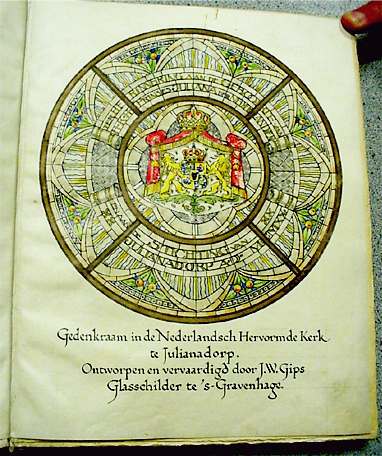 STICHTING VAN
JULIANADORP
Gedenkraam in de Nederlandsch Hervormde Kerk
te Julianadorp.
Ontworpen en vervaardigd door J.W. Gips
Glasschilder te 's-Gravenhage.